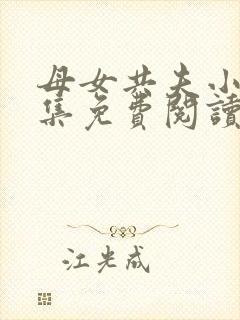 母女共夫小
集免費閱讀
江光成